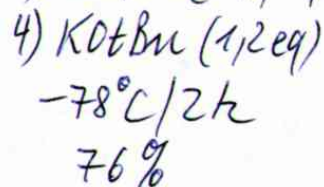 4) KOtBu (1,2eq)
-78°C/2h
76%